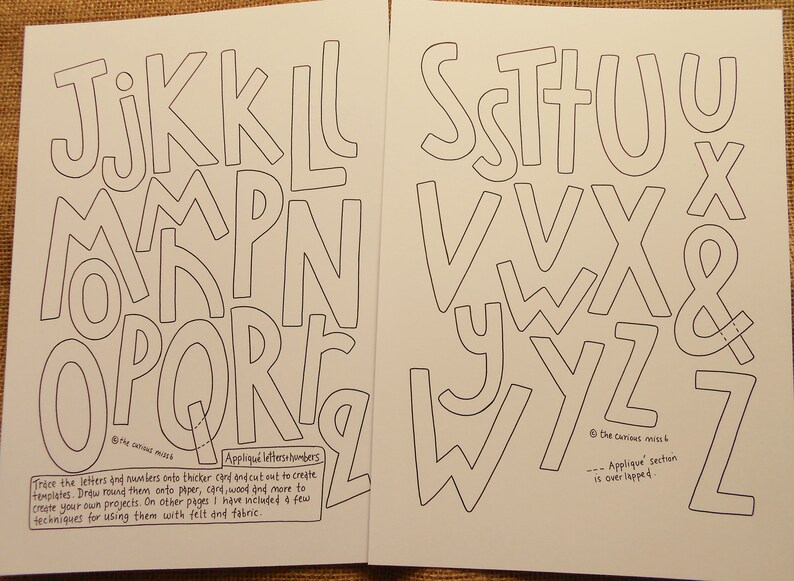 J j K k L l
M m P N
o h
O P Q R r
q
© the curious miss b
Appliqué letters+numbers
Trace the letters and numbers onto thicker card and cut out to create
templates. Draw round them onto paper, card, wood and more to
create your own projects. On other pages I have included a few
techniques for using them with felt and fabric.
S s T t U u
x
V v X
w &
y
W Y z
Z
© the curious miss b
--- Appliqué section
is overlapped.